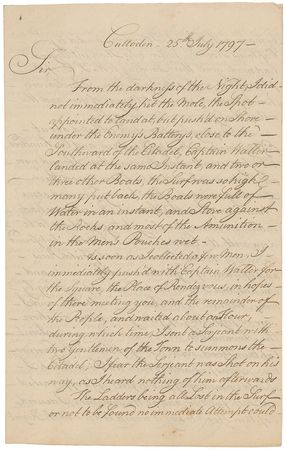 Culloden - 25th July 1797 -
Sir
From the darkness of the Night I did
not immediately hit the Mole, the Spot
appointed to land at, but push'd on Shore
under the Enemy's Battery, close to the
Southward of the Citadel, Captain Waller
landed at the same Instant, and two or
three other Boats, the Surf was so high
many put back, the Boats were full of
Water in an instant, and Stove against
the Rocks, and most of the Ammunition
in the Men's Pouches wet -
As soon as I collected a few Men, I
immediately push'd with Captain Waller for
the Square, the Place of Rendezvous, in hopes
of there meeting you, and the remainder of
the People, and waited about an hour,
during which time I sent a Serjeant with
two Gentlemen of the Town to summons the
Citadel; I fear the Serjeant was Shot on his
way, as I heard nothing of him afterwards
The Ladders being all Lost in the Surf
or not to be found no immediate Attempt could